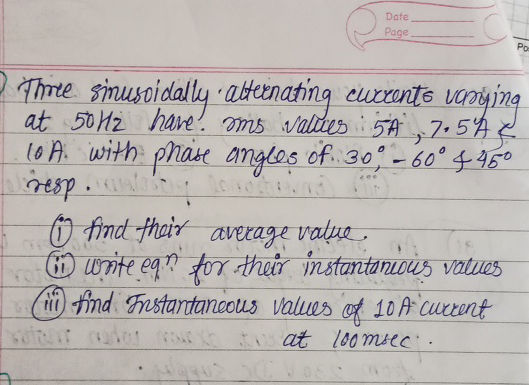 Date
Page
Po
Three sinusoidally alternating currents varying
at 50Hz have rms values 5A, 7.5A &
10A. with phase angles of 30°, -60° & 45°
resp.
(i) find their average value.
(ii) write eqⁿ for their instantanious values
(iii) find Instantaneous values of 10A current
at 100msec.